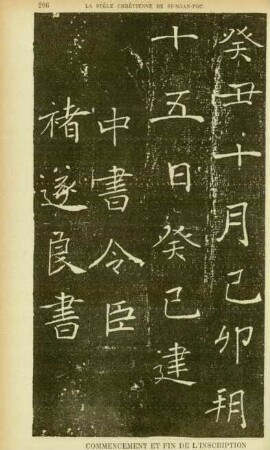 206 LA STÈLE CHRÉTIENNE DE SI-NGAN-FOU.
癸丑十月己卯朔
十五日癸巳建
中書令臣
褚遂良書
COMMENCEMENT ET FIN DE L'INSCRIPTION